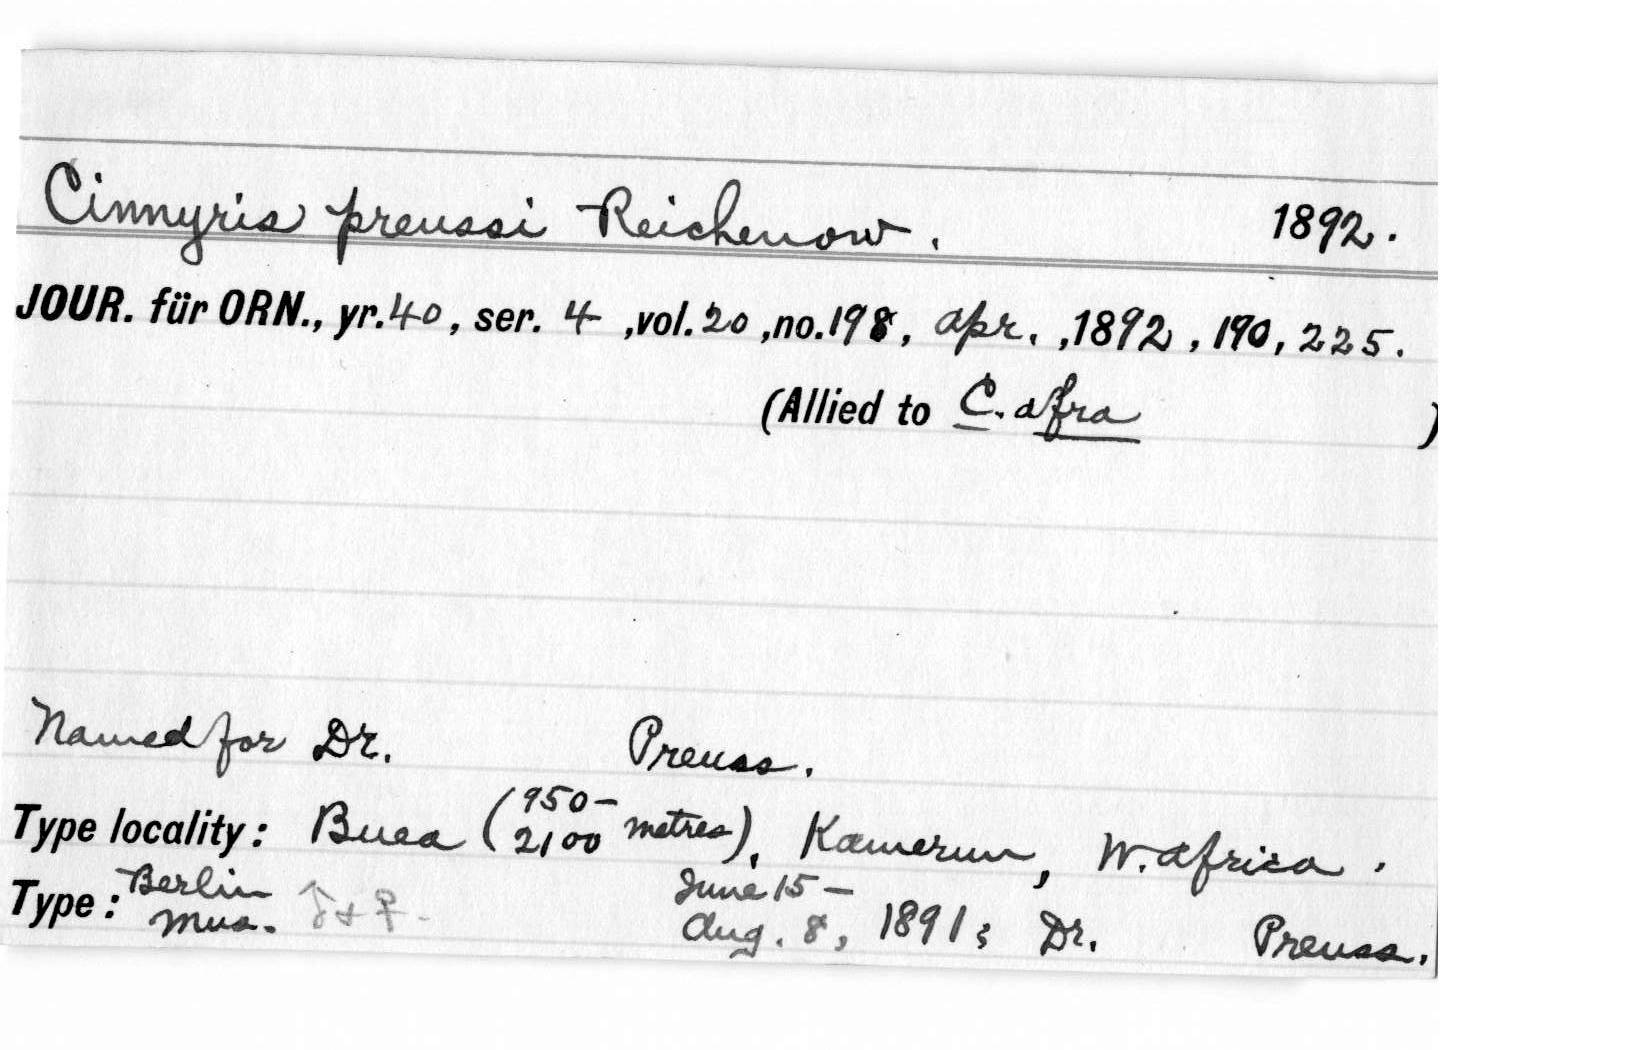 Cinnyris preussi Reichenow. 1892.
JOUR. für ORN., yr. 40, ser. 4, vol. 20, no. 198, Apr., 1892, 190, 225.
(Allied to C. afra )
Named for Dr. Preuss.
Type locality: Buea (950-2100 metres), Kamerun, W. Africa.
Type: Berlin Mus. ♂ + ♀. June 15 - Aug. 8, 1891; Dr. Preuss.